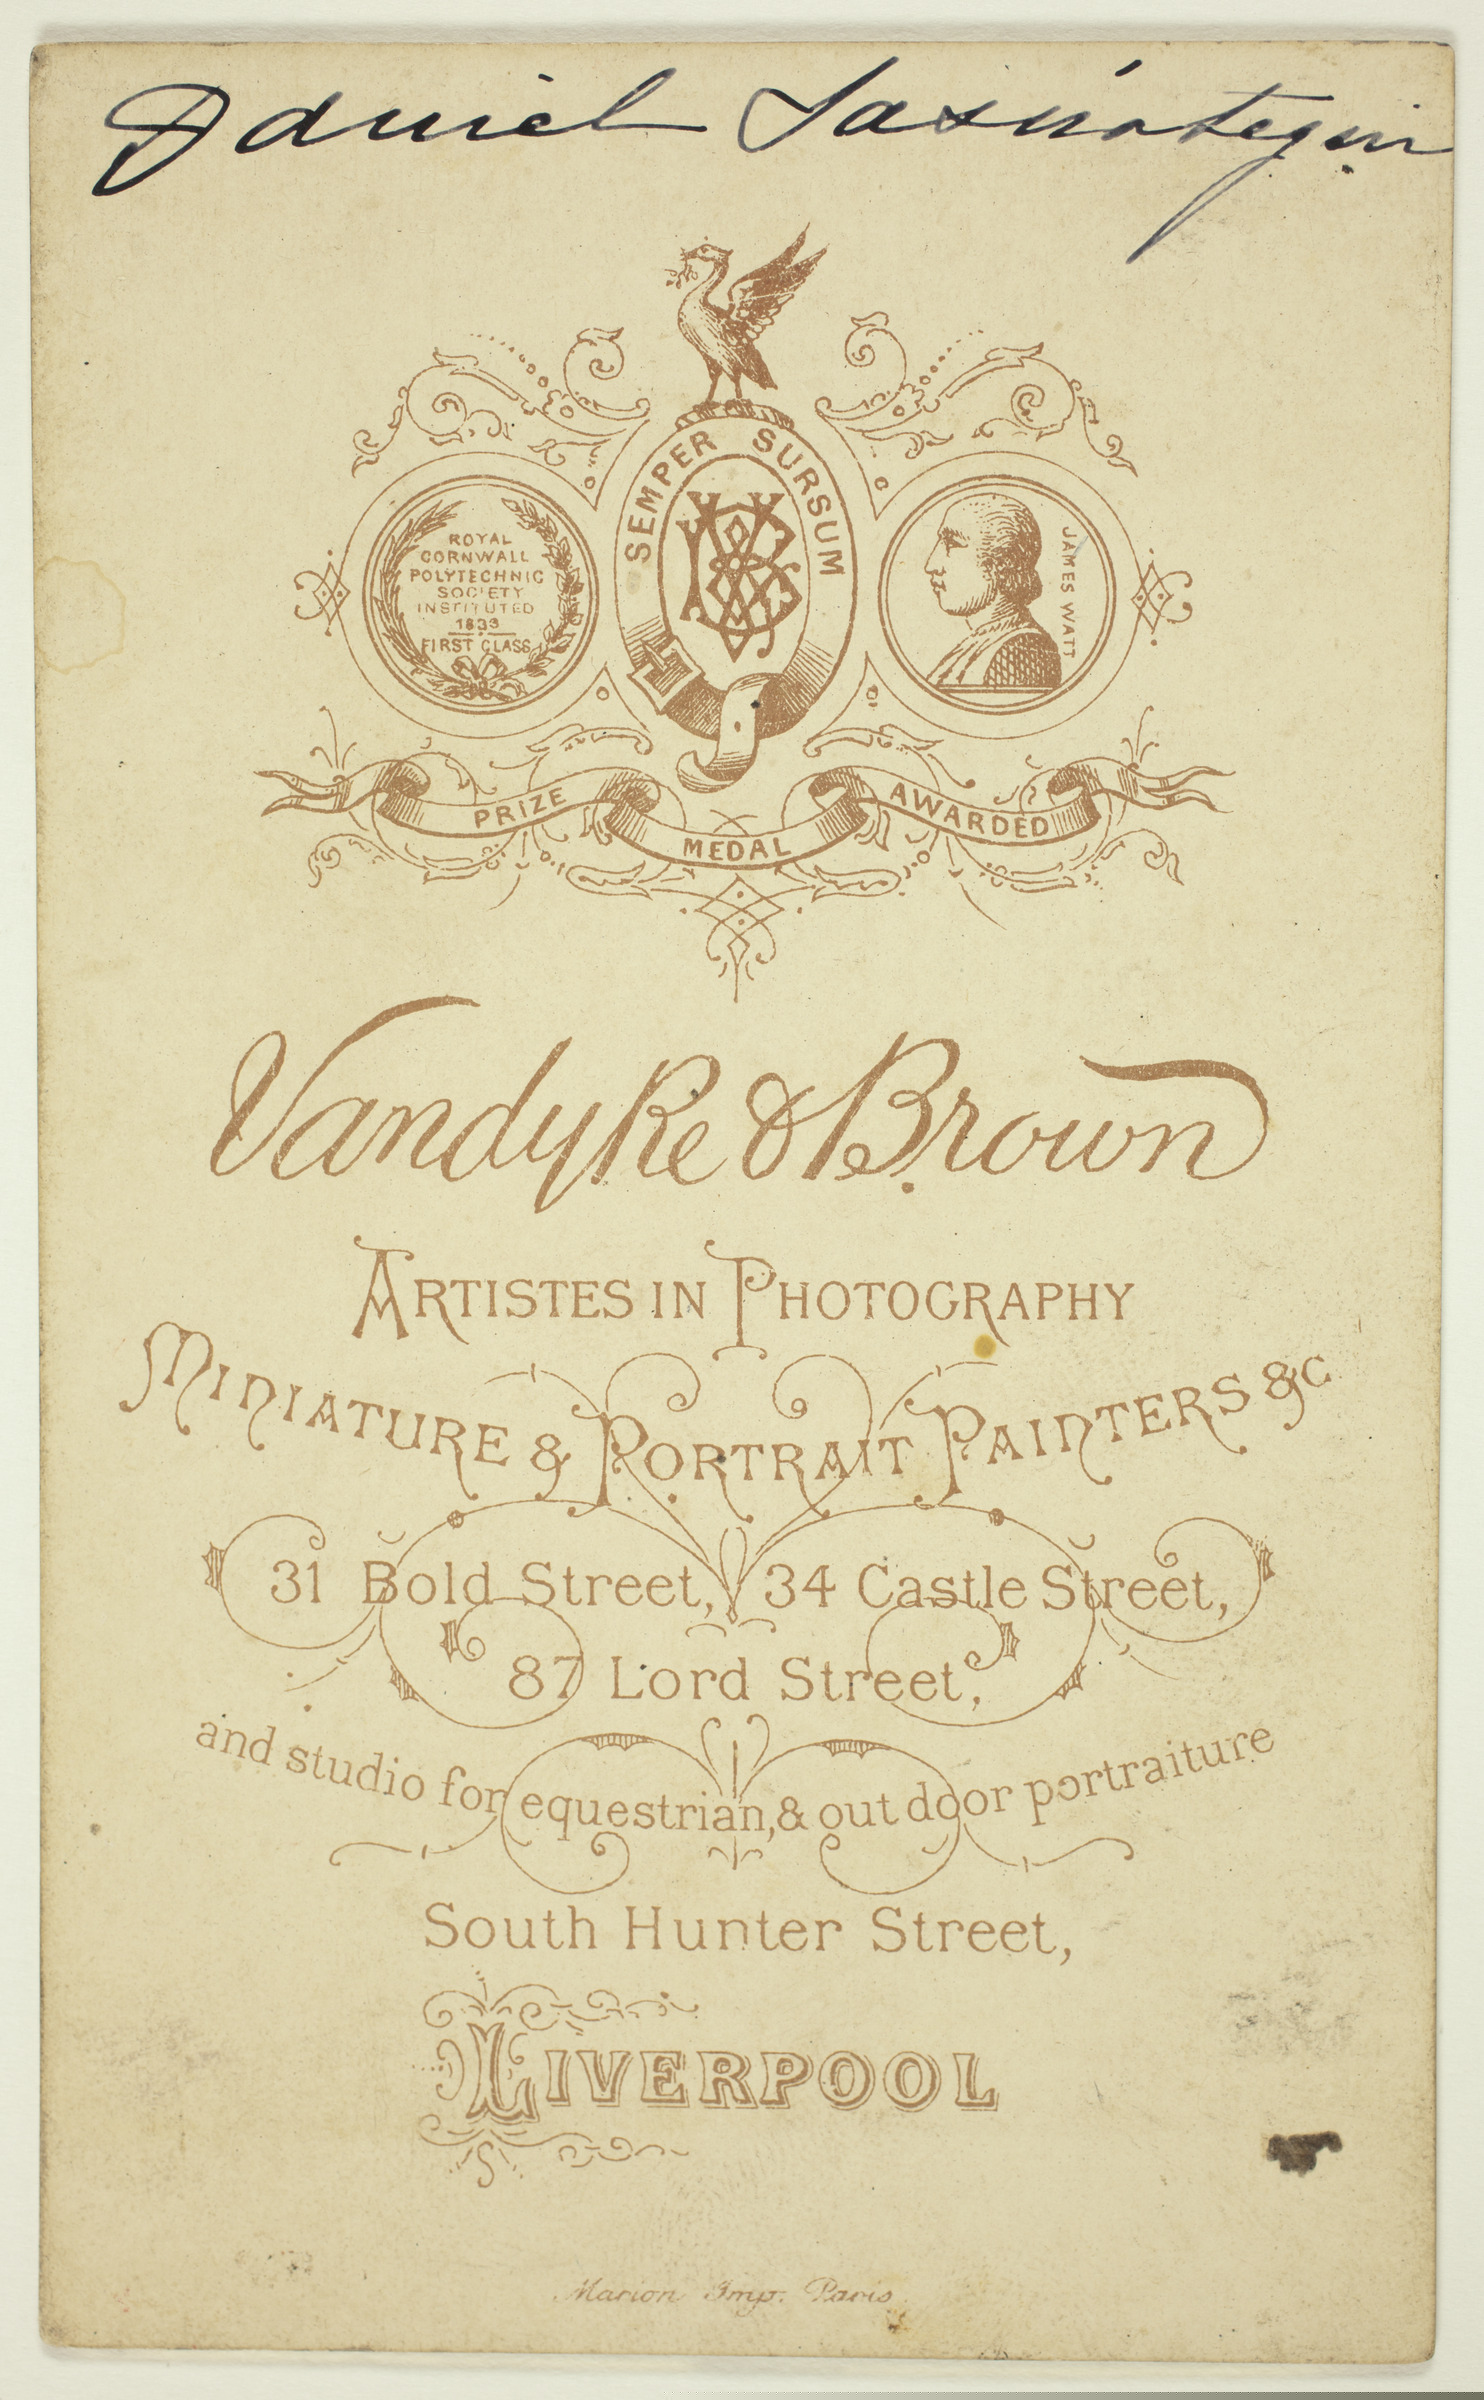 Daniel
SEMPER SURSUM
ROYAL
CORNWALL
POLYTECHNIC
SOCIETY
INSTITUTED
1833
FIRST CLASS
JAMES WATT
PRIZE MEDAL AWARDED
Vandyke & Brown
ARTISTES IN PHOTOGRAPHY
MINIATURE & PORTRAIT PAINTERS &c
31 Bold Street, 34 Castle Street,
87 Lord Street,
and studio for equestrian, & out door portraiture
South Hunter Street,
LIVERPOOL
Marion Imp. Paris